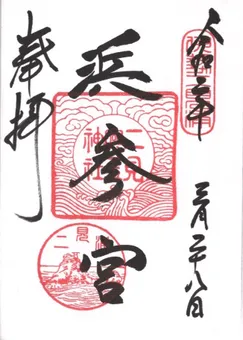 令和二年
三月二十八日
浜参宮
奉拝
二見
神社
二見